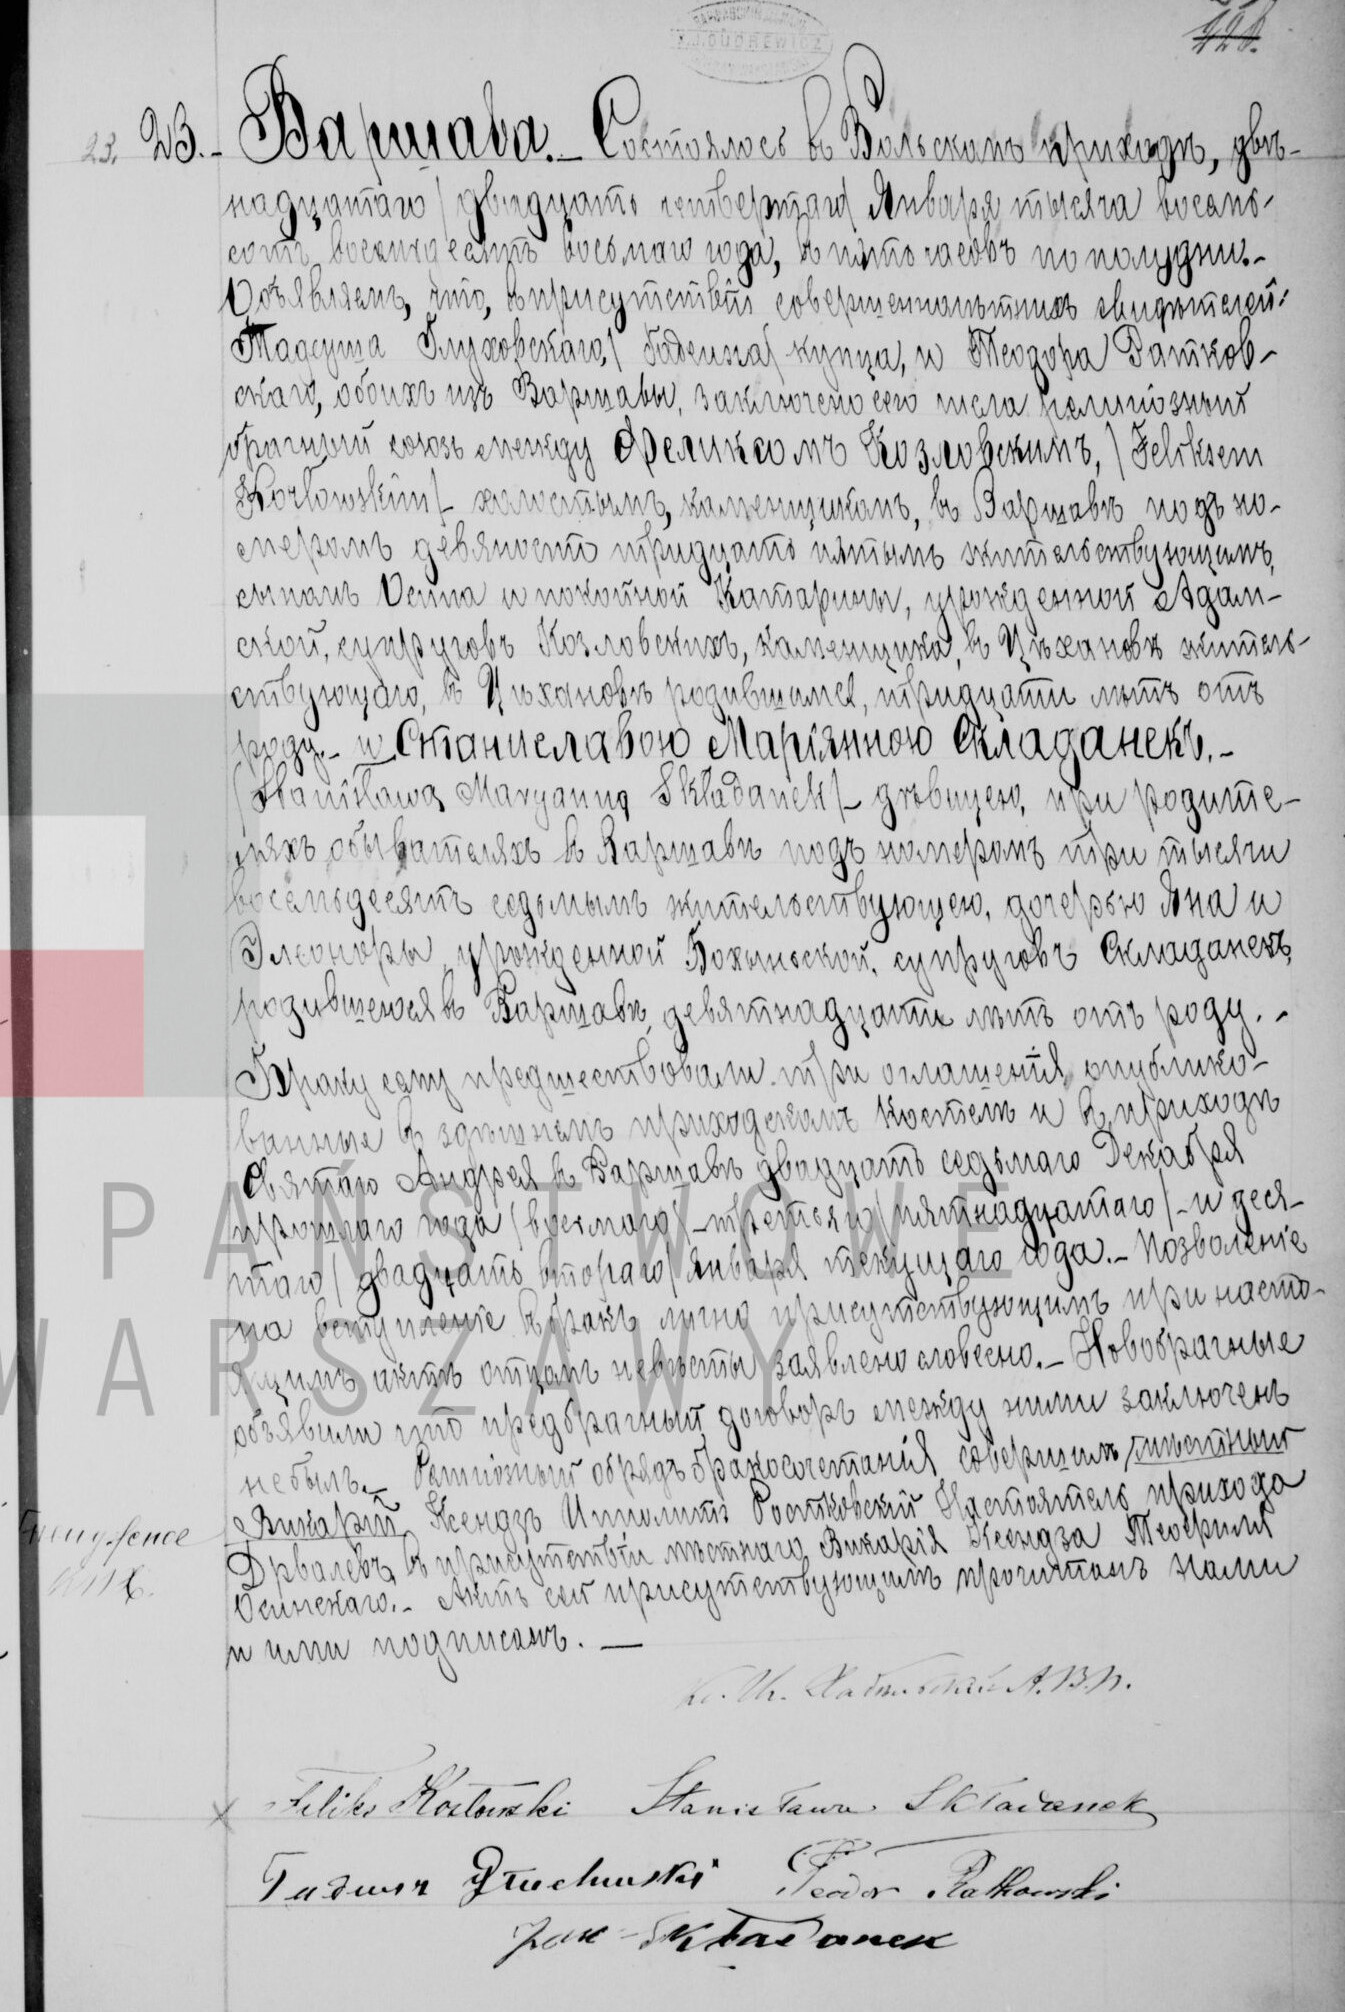 23. 23.- Варшава.- Состоялось въ Вольскомъ приходѣ, двѣ-
надцатаго /двадцать четвертаго/ Января тысяча восемь-
сотъ восемьдесятъ восьмаго года, въ пять часовъ по полудни.-
Объявляемъ, что, въ присутствіи совершеннолѣтнихъ свидѣтелей:
Тадеуша Глуховскаго, купца, и Теодора Ратков-
скаго, обоихъ изъ Варшавы, заключено сего числа религіозный
брачный союзъ между Феликсомъ Козловскимъ, /Feliksem
Kozłowskim/- холостымъ, каменщикомъ, въ Варшавѣ подъ но-
меромъ девяносто тридцать пятымъ жительствующимъ,
сыномъ Осипа и покойной Катарины, урожденной Адам-
ской, супруговъ Козловскихъ, каменщика, въ Цѣхановѣ житель-
ствующаго, въ Цѣхановѣ родившимся, тридцати лѣтъ отъ
роду.- и Станиславою Маріянною Складанекъ.-
/Stanisławą Maryanną Składanek/- дѣвицею, при родите-
ляхъ обывателяхъ въ Варшавѣ подъ номеромъ три тысячи
восемьдесятъ седьмымъ жительствующею, дочерью Яна и
Элеоноры, урожденной Бохыньской, супруговъ Складанекъ,
родившеюся въ Варшавѣ, девятнадцати лѣтъ отъ роду.-
Браку сему предшествовали три оглашенія, опублико-
ванные въ здѣшнемъ приходскомъ костелѣ и въ приходѣ
Святаго Андрея въ Варшавѣ двадцать седьмаго Декабря
прошлаго года /восьмаго/- третьяго /пятнадцатаго/- и деся-
таго /двадцать втораго/ Января текущаго года.- Позволеніе
на вступленіе въ бракъ лично присутствующимъ при насто-
ящимъ актѣ отцомъ невѣсты заявлено словесно.- Новобрачные
объявили что предбрачный договоръ между ними заключенъ
небылъ.- Религіозный обрядъ бракосочетанія совершилъ мѣстный
Викарій Ксендзъ Ипполитъ Ростковскій Настоятель прихода
Дрвалевъ, въ присутствіи мѣстнаго Викарія Ксендза Теофиля
Осинскаго.- Актъ сей присутствующимъ прочитанъ нами
и ими подписанъ.-
Feliks Kozłowski Stanisława Składanek
Tadeusz Głuchowski Teodor Ratkowski
Jan Składanek
PAŃSTWOWE
WARSZAWY